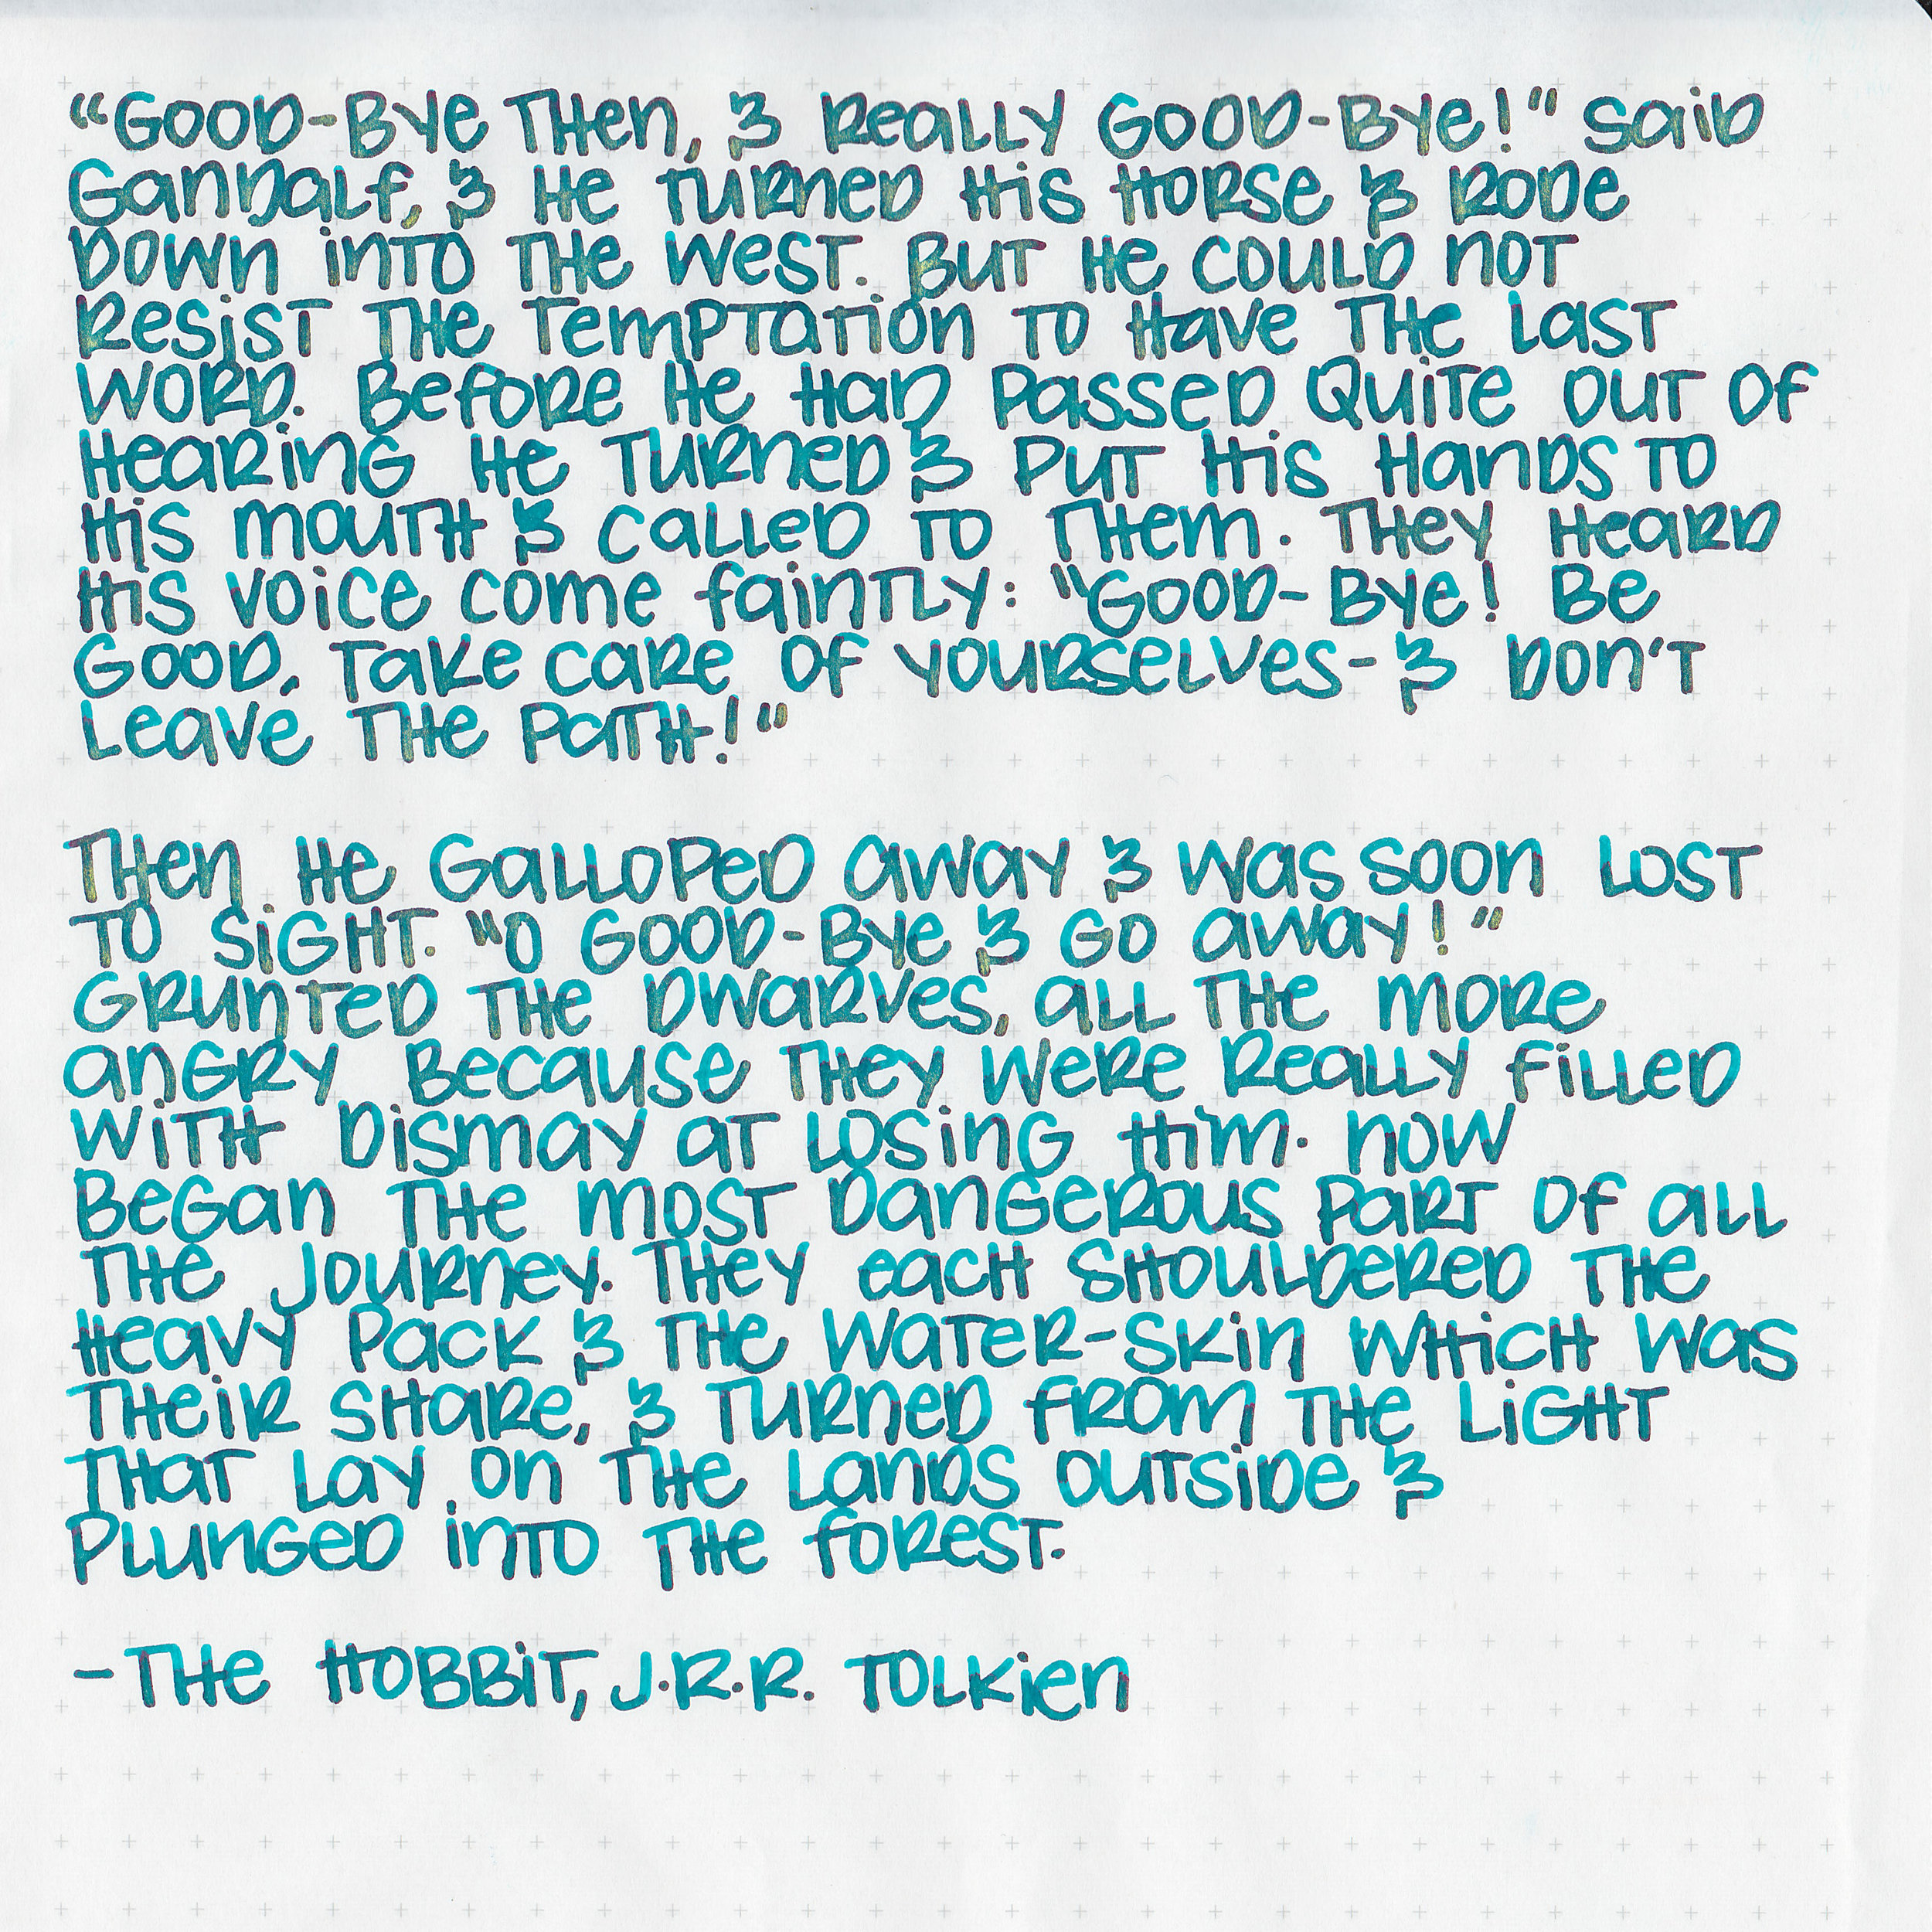 "Good-bye then, & really good-bye!" said
Gandalf, & he turned his horse & rode
down into the West. But he could not
resist the temptation to have the last
word. Before he had passed quite out of
hearing he turned & put his hands to
his mouth & called to them. They heard
his voice come faintly: "Good-bye! Be
good, take care of yourselves-& don't
leave the path!"
Then he galloped away & was soon lost
to sight. "O good-bye & go away!"
grunted the dwarves, all the more
angry because they were really filled
with dismay at losing him. Now
began the most dangerous part of all
the journey. They each shouldered the
heavy pack & the water-skin which was
their share, & turned from the light
that lay on the lands outside &
plunged into the forest.
-The Hobbit, J.R.R. Tolkien